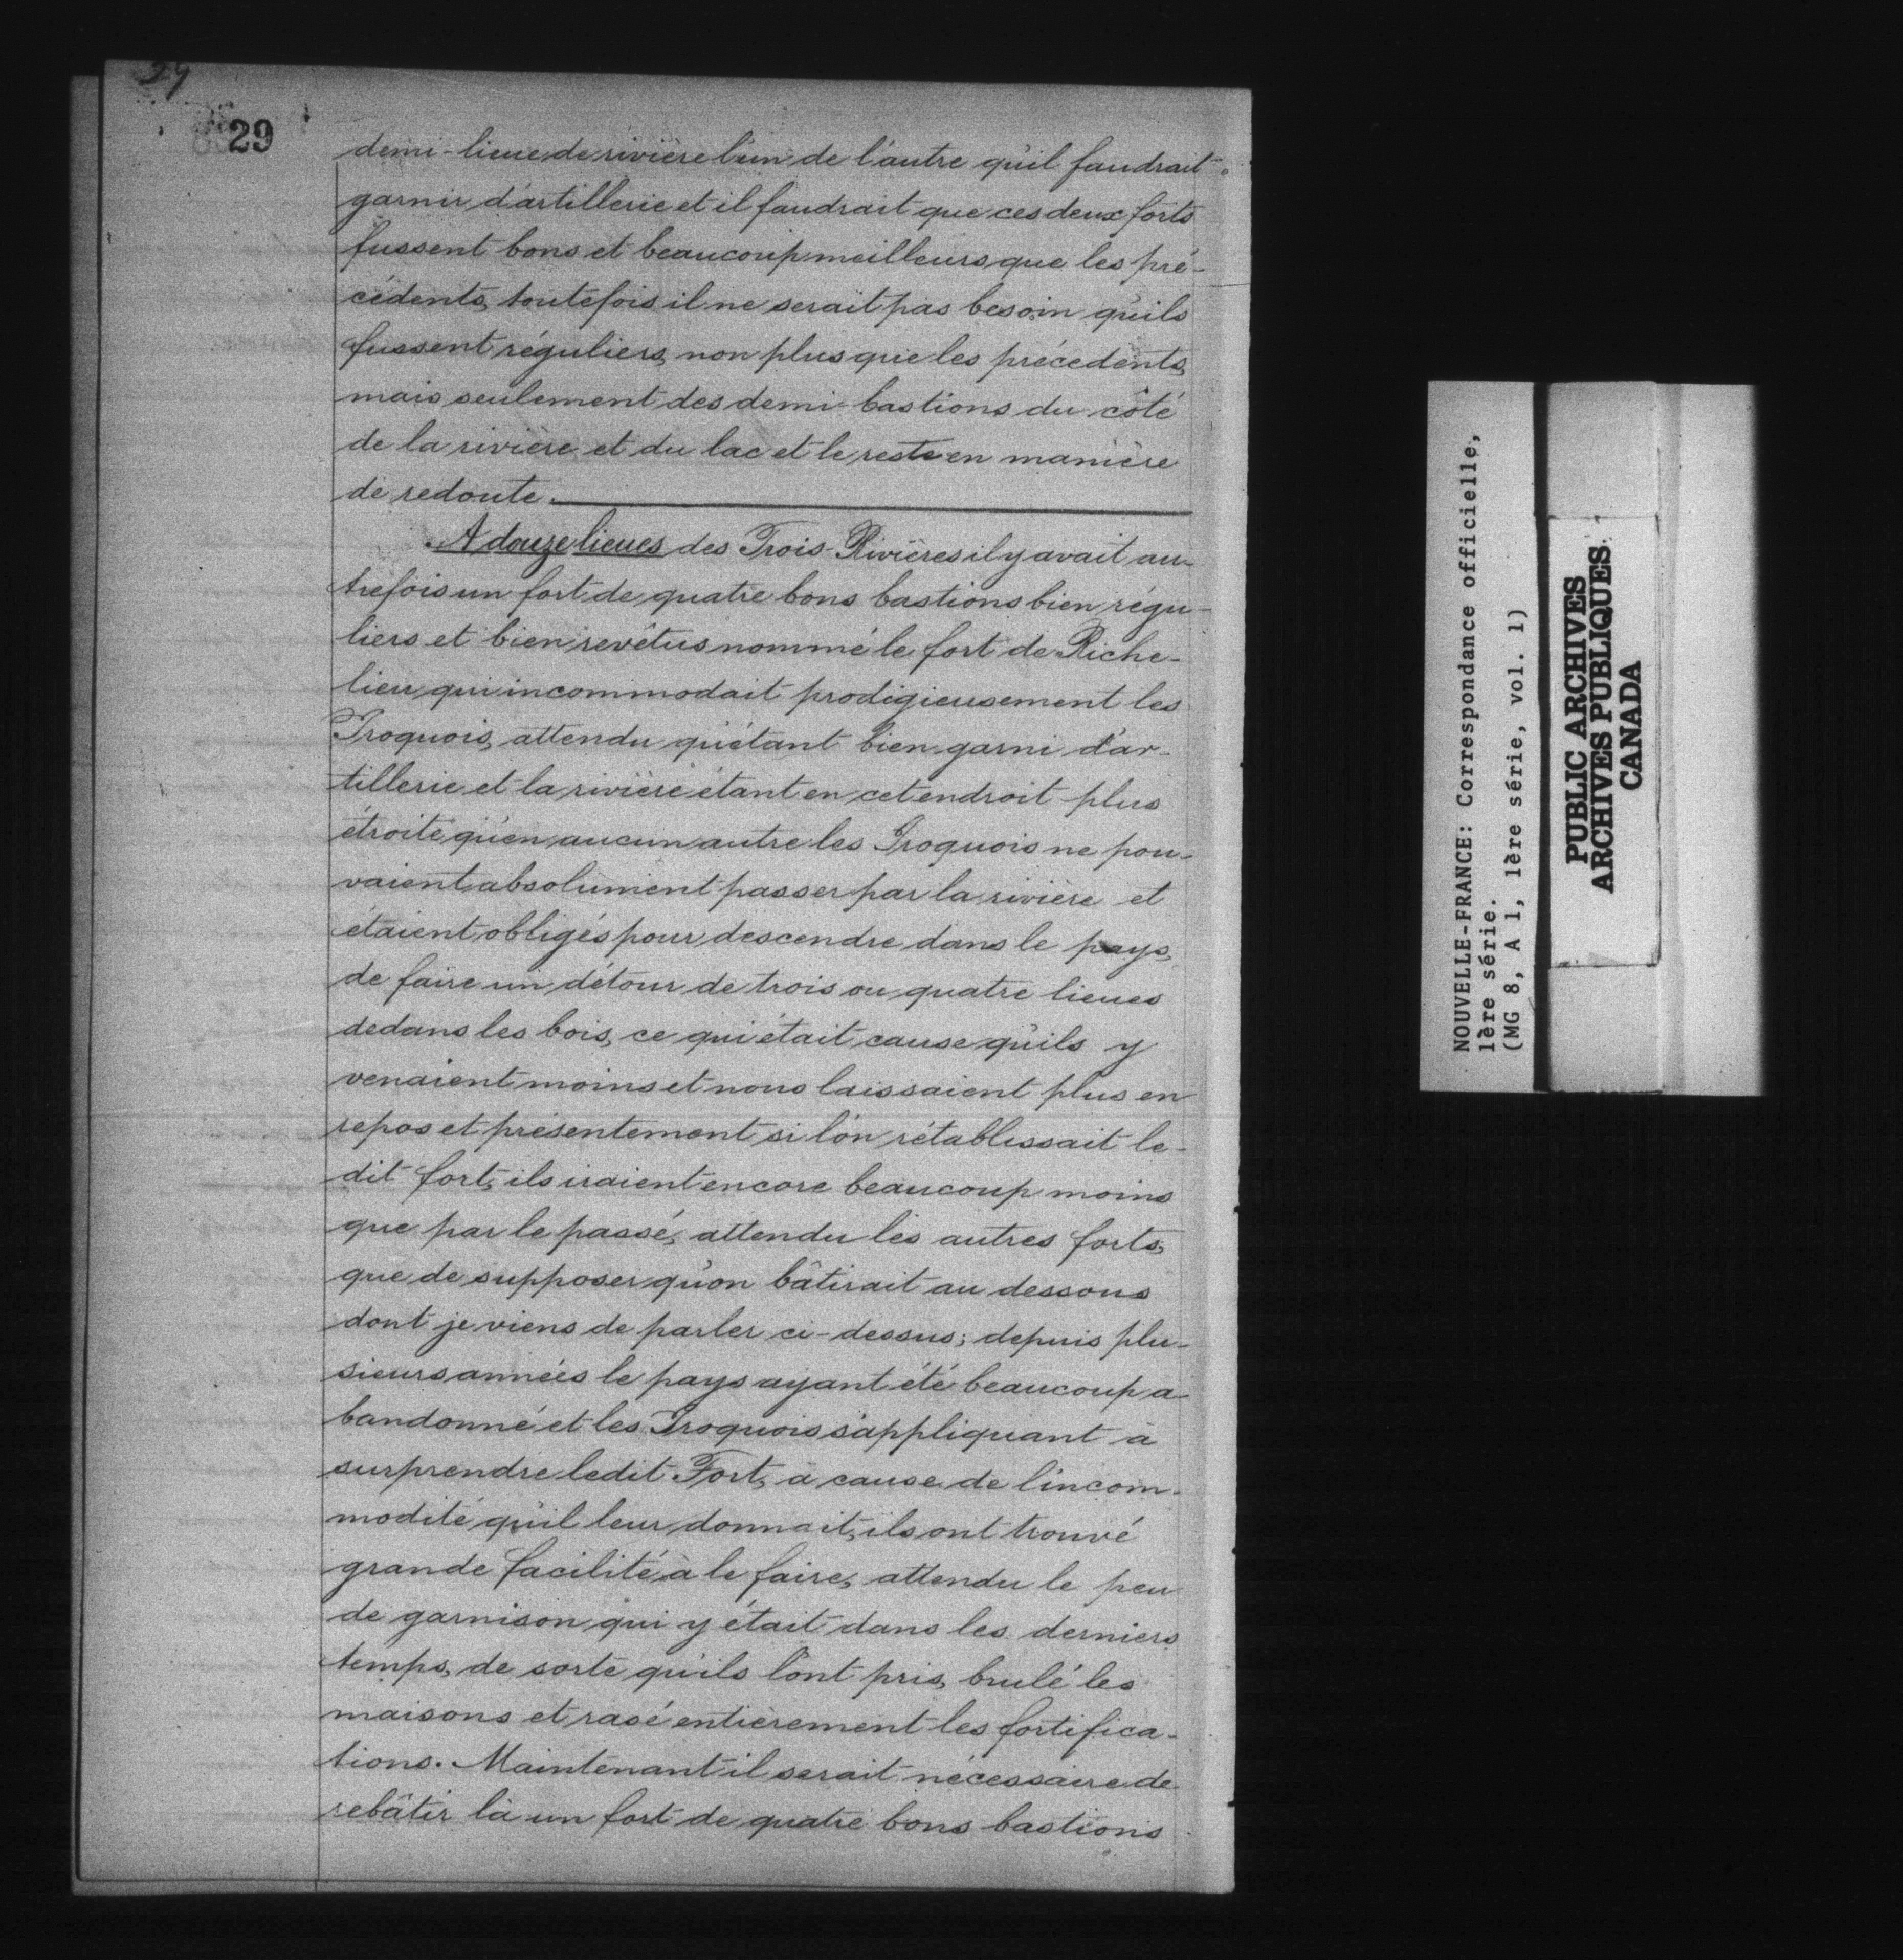 29
29
demi-lieue de rivière l'un de l'autre qu'il faudrait
garnir d'artillerie et il faudrait que ces deux forts
fussent bons et beaucoup meilleurs que les pré-
cédents, toutefois il ne serait pas besoin qu'ils
fussent réguliers, non plus que les précedents,
mais seulement des demi-bastions du côté
de la rivière et du lac et le reste en manière
de redoute.
A douze lieues des Trois-Rivières il y avait au-
trefois un fort de quatre bons bastions bien régu-
liers et bien revêtus nommé le fort de Riche-
lieu, qui incommodait prodigieusement les
Iroquois, attendu qu'étant bien garni d'ar-
tillerie et la rivière étant en cet endroit plus
étroite qu'en aucun autre les Iroquois ne pou-
vaient absolument passer par la rivière et
étaient obligés pour descendre dans le pays,
de faire un détour de trois ou quatre lieues
dedans les bois, ce qui était cause qu'ils y
venaient moins et nous laissaient plus en
repos et présentement si l'on rétablissait le-
dit fort, ils iraient encore beaucoup moins
que par le passé, attendu les autres forts,
que de supposer qu'on bâtirait au dessous
dont je viens de parler ci-dessus; depuis plu-
sieurs années le pays ayant été beaucoup a-
bandonné et les Iroquois s'appliquant à
surprendre ledit Fort, à cause de l'incom-
modité qu'il leur donnait, ils ont trouvé
grande facilité à le faire, attendu le peu
de garnison qui y était dans les derniers
temps, de sorte qu'ils l'ont pris, brulé les
maisons et rasé entièrement les fortifica-
tions. Maintenant il serait nécessaire de
rebâtir là un fort de quatre bons bastions
NOUVELLE-FRANCE: Correspondance officielle,
1ère série.
(MG 8, A 1, 1ère série, vol. 1)
PUBLIC ARCHIVES
ARCHIVES PUBLIQUES
CANADA